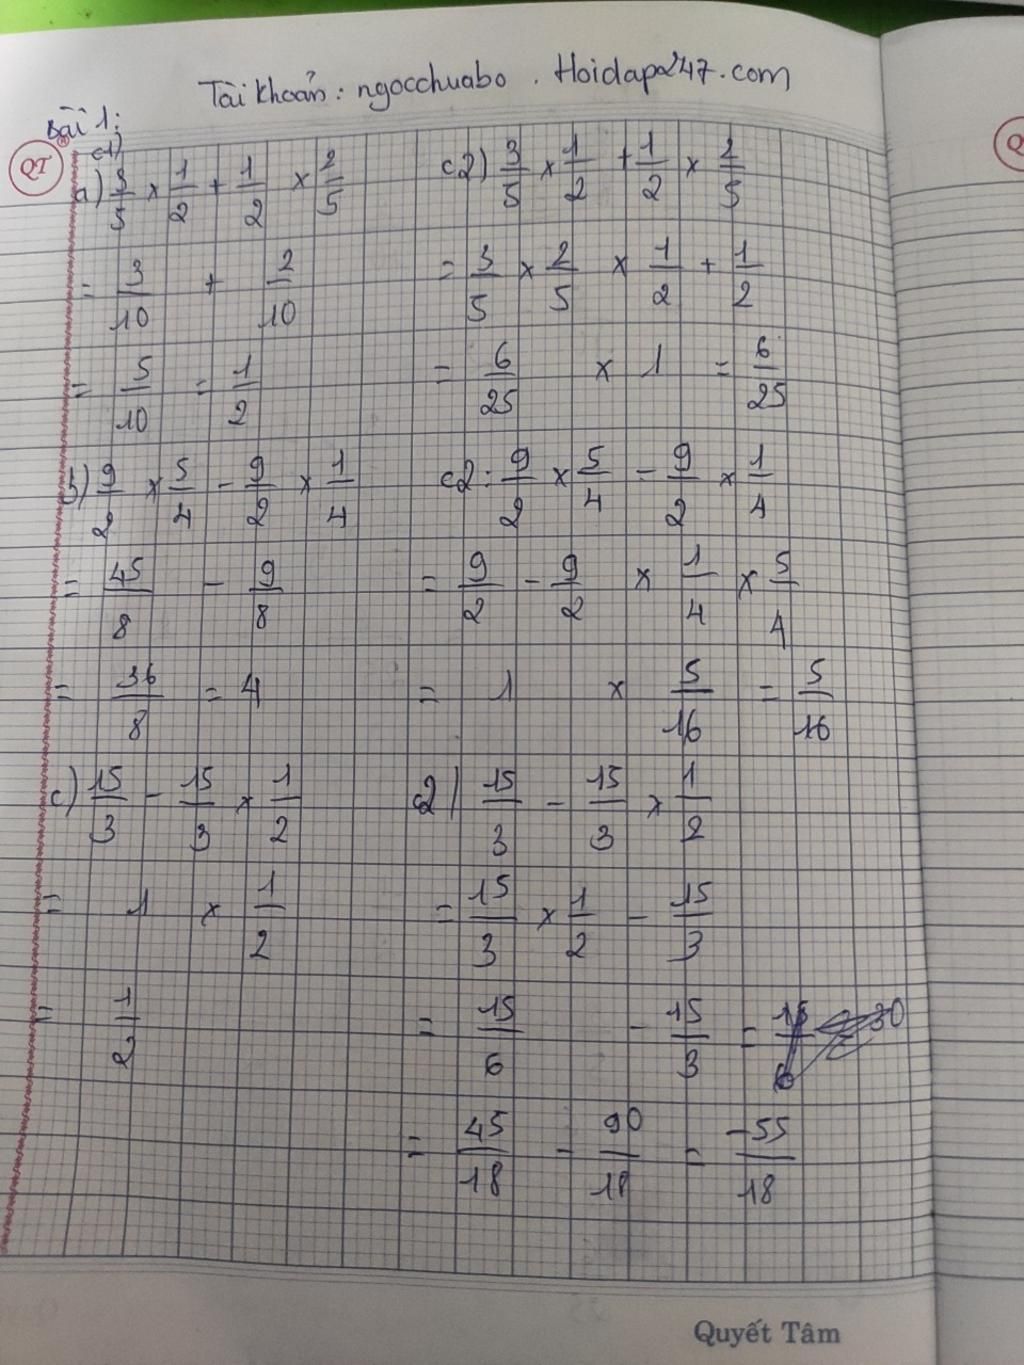 Tài khoản : ngocchuabo . Hoidap247.com
Bài 1:
QT
c1)
a) 3/5 × 1/2 + 1/2 × 2/5
= 3/10 + 2/10
= 5/10 = 1/2
c2) 3/5 × 1/2 + 1/2 × 2/5
= 3/5 × 2/5 × 1/2 + 1/2
= 6/25 × 1 = 6/25
b) 9/2 × 5/4 - 9/2 × 1/4
= 45/8 - 9/8
= 36/8 = 4
c2: 9/2 × 5/4 - 9/2 × 1/4
= 9/2 - 9/2 × 1/4 × 5/4
= 1 × 5/16 = 5/16
c) 15/3 - 15/3 × 1/2
= 1 × 1/2
= 1/2
c2) 15/3 - 15/3 × 1/2
= 15/3 × 1/2 - 15/3
= 15/6 - 15/3 =
= 45/18 - 90/18 = -55/18
Quyết Tâm